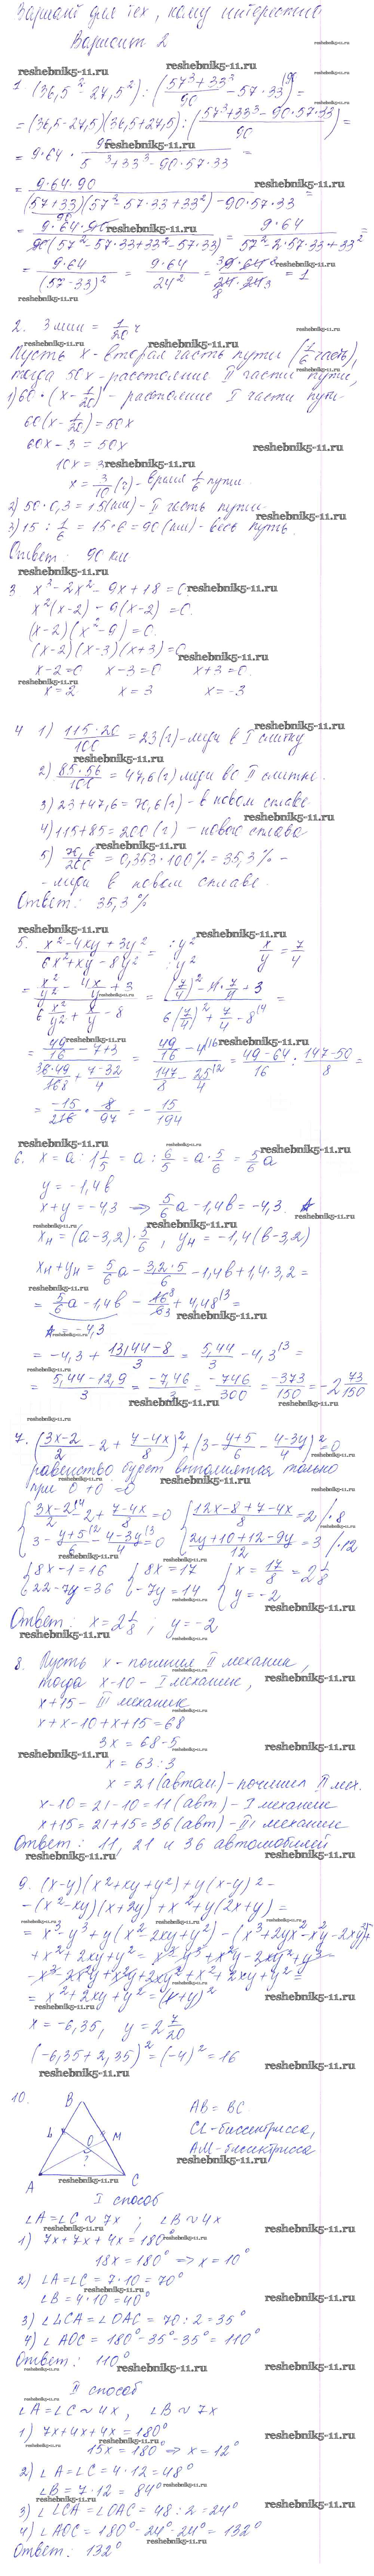 Вариант для тех, кому интересно
Вариант 2
reshebnik5-11.ru
1 (36,5² - 27,5²) : ((57³+33³)/90 - 57·33) =
= (36,5-27,5)(36,5+27,5) : ((57³+33³-90·57·33)/90) =
= 9·64 · 90/(57³+33³-90·57·33) =
= 9·64·90/((57+33)(57²-57·33+33²)-90·57·33) =
= 9·64·90/(90(57²-57·33+33²-57·33)) = 9·64/(57²-2·57·33+33²) =
= 9·64/(57-33)² = 9·64/24² = 9·64/(24·24) = 1
2. 3 мин = 1/20 ч
Пусть x - вторая часть пути (1/6 часть),
тогда 50x - расстояние II части пути,
1) 60·(x - 1/20) - расстояние I части пути
60(x - 1/20) = 50x
60x - 3 = 50x
10x = 3
x = 3/10 (ч) - время 1/6 пути.
2) 50·0,3 = 15 (км) - II часть пути
3) 15 : 1/6 = 15·6 = 90 (км) - весь путь.
Ответ: 90 км
3 x³ - 2x² - 9x + 18 = 0
x²(x-2) - 9(x-2) = 0.
(x-2)(x²-9) = 0.
(x-2)(x-3)(x+3) = 0
x-2=0 x-3=0 x+3=0.
x=2 x=3 x=-3
4 1) 115·20/100 = 23 (г) - меди в I слитке
2) 85·56/100 = 47,6 (г) меди во II слитке.
3) 23+47,6 = 70,6 (г) - в новом сплаве
4) 115+85 = 200 (г) - нового сплава
5) 70,6/200 = 0,353·100% = 35,3% -
- меди в новом сплаве.
Ответ: 35,3%
5. (x²-4xy+3y²)/(6x²+xy-8y²) :y² :y² x/y = 7/4
= (x²/y² - 4x/y + 3)/(6x²/y² + x/y - 8) = ((7/4)² - 4·7/4 + 3)/(6(7/4)² + 7/4 - 8) =
= (49/16 - 7+3)/(6·49/16 + (7-32)/4) = (49/16 - 4)/(147/8 - 25/4) = (49-64)/16 : (147-50)/8 =
= -15/16 · 8/97 = - 15/194
6. x = a : 1 1/5 = a : 6/5 = a · 5/6 = 5/6 a
y = -1,4в
x+y = -4,3 ⇒ 5/6 a - 1,4в = -4,3.
xн = (a-3,2)·5/6 ; yн = -1,4(в-3,2)
xн+yн = 5/6 a - 3,2·5/6 - 1,4в + 1,4·3,2 =
= 5/6 a - 1,4в - 16/6 + 4,48 =
= -4,3
= -4,3 + (13,44-8)/3 = 5,44/3 - 4,3 =
= (5,44-12,9)/3 = -7,46/3 = -746/300 = -373/150 = -2 73/150
7. ((3x-2)/2 - 2 + (7-4x)/8)² + (3 - (y+5)/6 - (4-3y)/4)² = 0
равенство будет выполняться только
при 0+0=0
{ (3x-2)/2 - 2 + (7-4x)/8 = 0 { (12x-8+7-4x)/8 = 2 /·8
3 - (y+5)/6 - (4-3y)/4 = 0 (2y+10+12-9y)/12 = 3 /·12
{ 8x-1=16 { 8x=17 { x = 17/8 = 2 1/8
22-7y=36 -7y=14 y=-2
Ответ: x = 2 1/8 ; y = -2
8. Пусть x - починил II механик,
тогда x-10 - I механик,
x+15 - III механик
x+x-10+x+15=68
3x = 68-5
x = 63:3
x = 21 (автом) - починил II мех.
x-10 = 21-10 = 11 (авт) - I механик
x+15 = 21+15 = 36 (авт) - III механик
Ответ: 11, 21 и 36 автомобилей
9. (x-y)(x²+xy+y²) + y(x-y)² -
- (x²-xy)(x+2y) + x² + y(2x+y) =
= x³-y³+y(x²-2xy+y²) - (x³+2yx²-x²y-2xy²) +
+ x²+2xy+y² = x³-y³+x²y-2xy²+y³-
-x³-2x²y+x²y+2xy²+x²+2xy+y² =
= x²+2xy+y² = (x+y)²
x = -6,35, y = 2 7/20
(-6,35+2,35)² = (-4)² = 16
10.
B
L
O
M
?
A
C
AB = BC
CL - биссектрисса,
AM - биссектрисса
I способ
∠A=∠C ~ 7x ; ∠B ~ 4x
1) 7x+7x+4x=180°
18x = 180° ⇒ x = 10°
2) ∠A=∠C = 7·10 = 70°
∠B = 4·10 = 40°
3) ∠LCA = ∠OAC = 70:2 = 35°
4) ∠AOC = 180°-35°-35° = 110°
Ответ: 110°
II способ
∠A=∠C ~ 4x, ∠B ~ 7x
1) 7x+4x+4x=180°
15x = 180° ⇒ x = 12°
2) ∠A=∠C = 4·12 = 48°
∠B = 7·12 = 84°
3) ∠LCA = ∠OAC = 48:2 = 24°
4) ∠AOC = 180°-24°-24° = 132°
Ответ: 132°